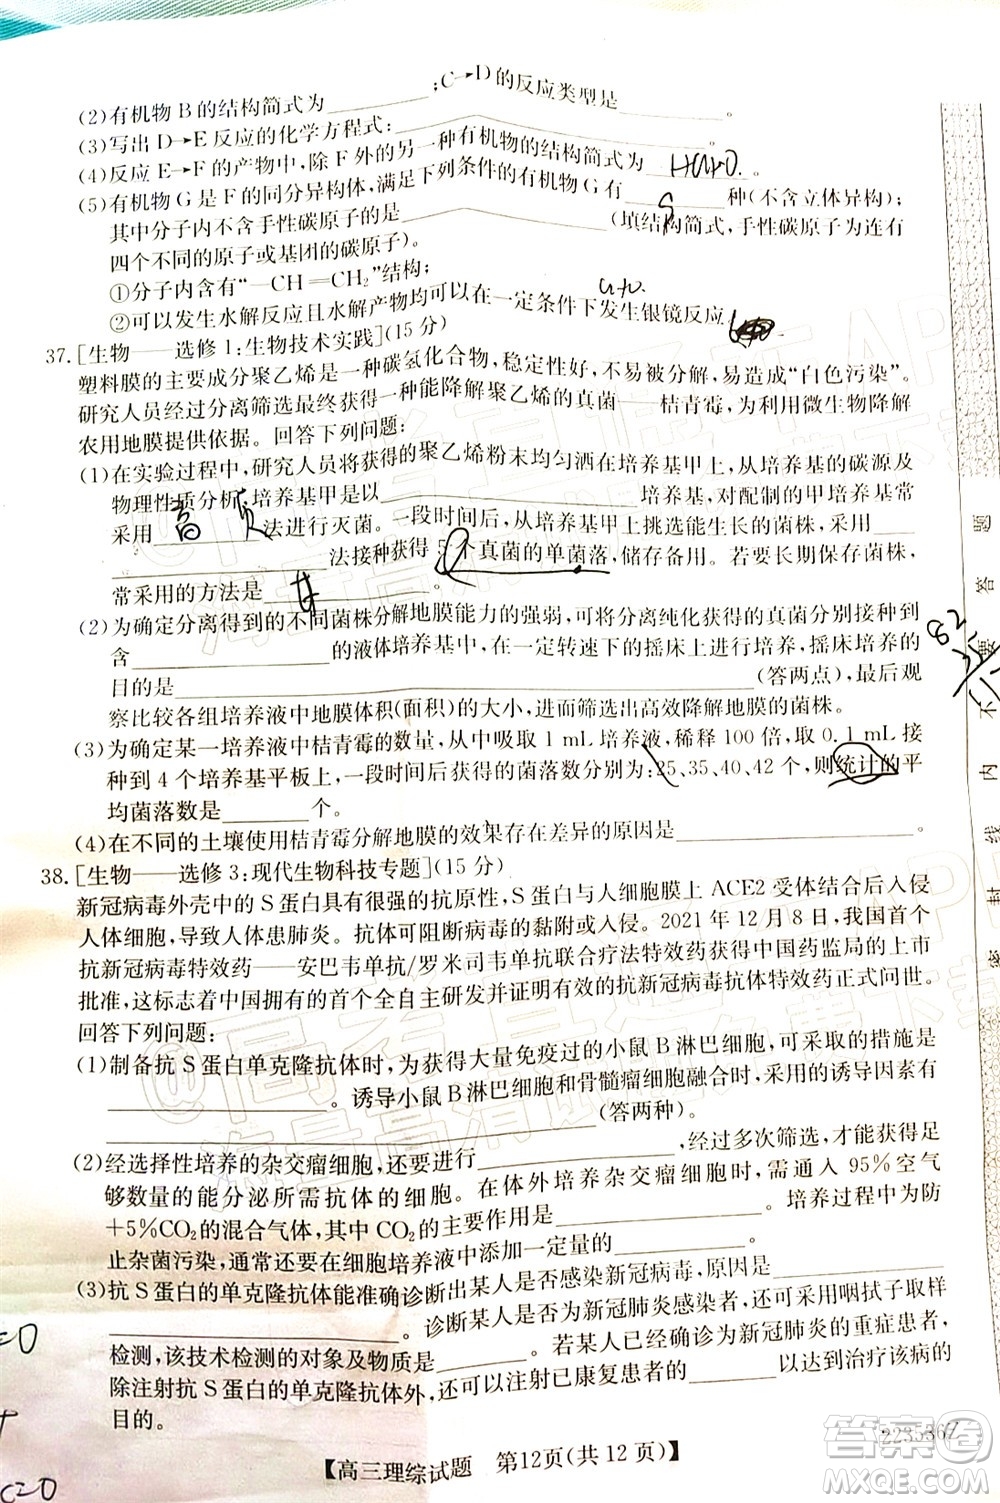 (2)有机物 B 的结构简式为________;C→D的反应类型是________
(3)写出 D→E 反应的化学方程式:________
(4)反应 E→F 的产物中,除 F 外的另一种有机物的结构简式为________。
(5)有机物 G 是 F 的同分异构体,满足下列条件的有机物 G 有________种(不含立体异构);
其中分子内不含手性碳原子的是________(填结构简式,手性碳原子为连有
四个不同的原子或基团的碳原子)。
①分子内含有“—CH═CH₂”结构;
②可以发生水解反应且水解产物均可以在一定条件下发生银镜反应
37.[生物——选修 1:生物技术实践](15 分)
塑料膜的主要成分聚乙烯是一种碳氢化合物,稳定性好,不易被分解,易造成“白色污染”。
研究人员经过分离筛选最终获得一种能降解聚乙烯的真菌——桔青霉,为利用微生物降解
农用地膜提供依据。回答下列问题:
(1)在实验过程中,研究人员将获得的聚乙烯粉末均匀洒在培养基甲上,从培养基的碳源及
物理性质分析,培养基甲是以________培养基,对配制的甲培养基常
采用________法进行灭菌。一段时间后,从培养基甲上挑选能生长的菌株,采取________
________法接种获得 5 个真菌的单菌落,储存备用。若要长期保存菌株,
常采用的方法是________。
(2)为确定分离得到的不同菌株分解地膜能力的强弱,可将分离纯化获得的真菌分别接种到
含________的液体培养基中,在一定转速下的摇床上培养,摇床培养的
目的是________(答两点),最后观
察比较各组培养液中地膜体积(面积)的大小,进而筛选出高效降解地膜的菌株。
(3)为确定某一培养液中桔青霉的数量,某同学取 1 mL 培养液,稀释 100 倍,取 0.1 mL 接
种到 4 个培养基平板上,一段时间后获得的菌落数分别为:25、35、40、42 个,则统计的平
均菌落数是________个。
(4)在不同的土壤使用桔青霉分解地膜的效果存在差异的原因是________。
38.[生物——选修 3:现代生物科技专题](15 分)
新冠病毒外壳中的 S 蛋白具有很强的抗原性,S 蛋白与人细胞膜上 ACE2 受体结合后入侵
人体细胞,导致人体患肺炎。抗体可阻断病毒的黏附或入侵。2021 年 12 月 8 日,我国首个
抗新冠病毒特效药——安巴韦单抗/罗米司韦单抗联合疗法特效药获得中国药监局的上市
批准,这标志着中国拥有首个全自主研发并证明有效的抗新冠病毒特效药正式问世。
回答下列问题:
(1)制备抗 S 蛋白单克隆抗体时,为获得大量免疫过的小鼠 B 淋巴细胞,可采取的措施是
________。诱导小鼠 B 淋巴细胞和骨髓瘤细胞融合时,采用的诱导因素有
________(答两种)。
(2)经选择性培养的杂交瘤细胞,还要进行________,经过多次筛选,就可获得足
够数量的能分泌所需抗体的细胞。在体外培养杂交瘤细胞时,通入 95%空气
+5%CO₂的混合气体,其中 CO₂的主要作用是________。培养过程中为防
止杂菌污染,通常还要在细胞培养液中添加________。
(3)抗 S 蛋白的单克隆抗体能准确诊断出某人是否感染新冠病毒,原理是
________。诊断某人是否为新冠肺炎感染者,还可通过用咽拭子取样
检测,该技术检测的对象及物质是________。若某人已经确诊为新冠肺炎的重症患者,
除注射抗 S 蛋白的单克隆抗体外,还可注射已康复患者的________以达到治疗该病的
目的。
【高三理综试题 第12页(共 12 页)】